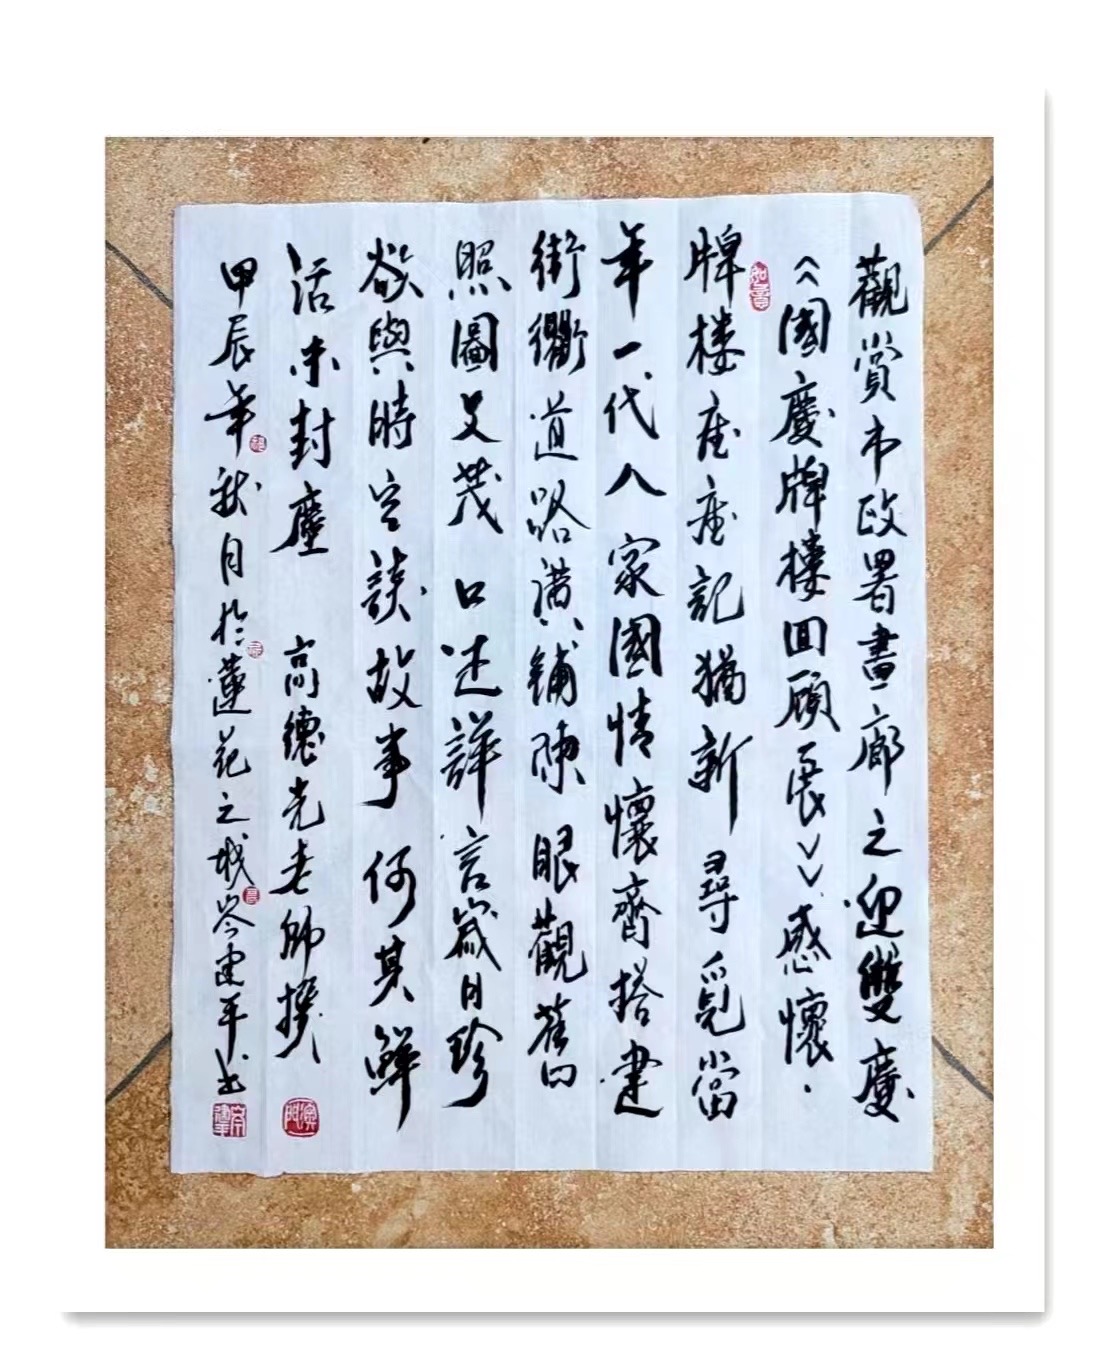 觀賞市政署畫廊之迎雙慶
《國慶牌樓回顧展》感懷．
牌楼座座記猶新 尋覓當
年一代人 家國情懷齊搭建
街衢道路滿鋪陳 眼觀舊
照圖文茂 口述詳言歲月珍
欲與時空談故事 何其鮮
活未封塵 高德光老師撰
甲辰年秋月於蓮花之城岑建平书
如意